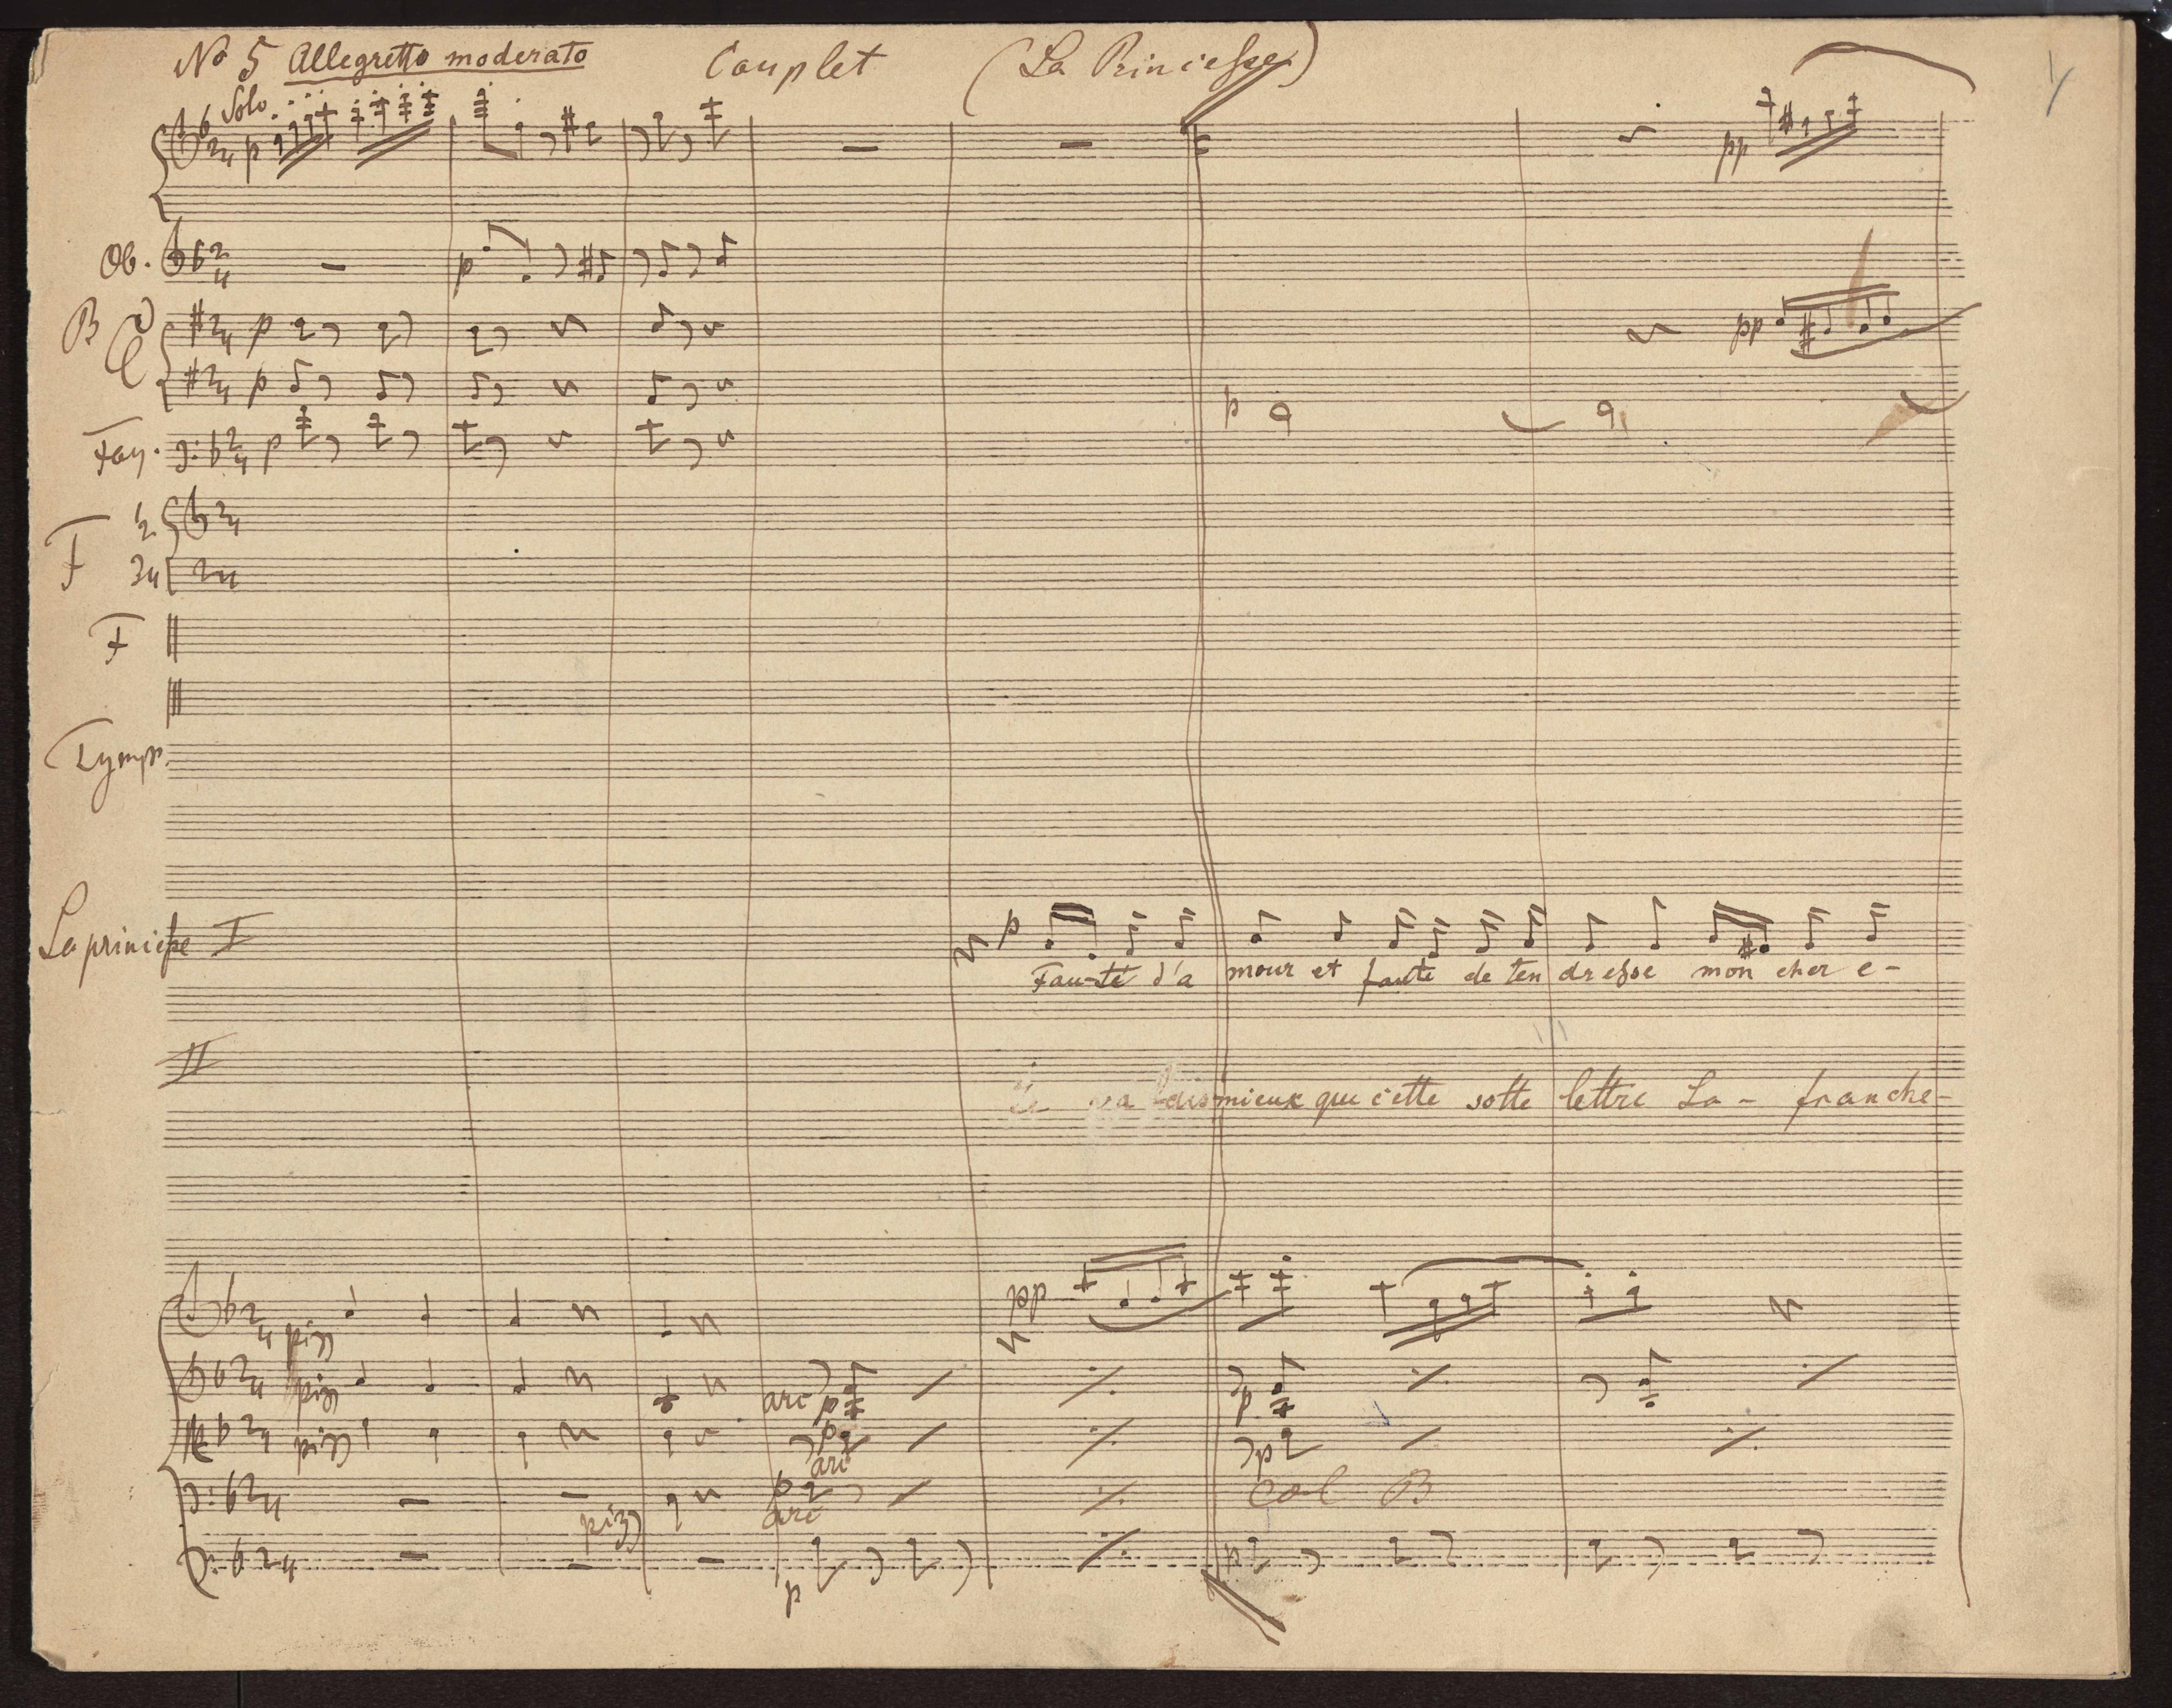 No 5 Allegretto moderato Couplet (La Princesse)
Solo.
p
pp
Ob.
p
B
p
pp
p
p
Fag.
p
F
1/2
3/4
F
Tymp.
La princesse I
p
Faute d'a mour et faute de ten dresse mon cher e-
II
mieux que cette sotte lettre La - franche-
pp
pizz
pizz
arc p
p
pizz
p
arc
p
p
arc
col B
pizz
p
p